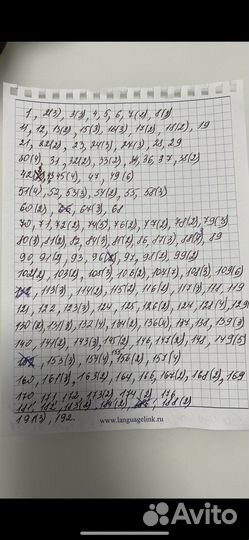 1, 2(3), 3(3), 4, 5, 6, 7(2), 8(2)
11, 12, 13(2), 15(3), 16(3), 17(2), 18(2), 19
21, 22(2), 23, 24(3), 24(3), 28, 29
30(4), 31, 32(2), 33(2), 34, 36, 37, 38(2)
45(4), 47, 49(6)
51(4), 52, 53(3), 54(2), 55, 58(3)
60(2), 64(3), 68
70, 71, 72(2), 74(5), 76(2), 77(2), 78(2), 79(3)
80(3), 81(2), 82, 84(3), 85(2), 86, 87(3), 88(3), 89
90, 91(2), 93, 96(2), 97, 98(2), 99(2)
102(2), 103(2), 105(3), 106(2), 107(2), 108(3), 109(6)
113(3), 114(2), 115(2), 116(2), 117(3), 118, 119
121, 122, 123(3), 124, 125, 126(2), 127, 128(4), 129
130(2), 131(3), 132(4), 134(2), 136(4), 137, 138, 139(3)
140, 141(2), 143(3), 145(2), 146, 147(2), 148, 149(5)
153(3), 154(4), 156(2), 157(4)
160, 161(3), 163(2), 164, 165, 167(2), 168(2), 169
170, 171, 172, 173(2), 174(2), 178
181, 182, 183(2), 184(2), 188(2)
191(3), 192.
www.languagelink.ru
Avito